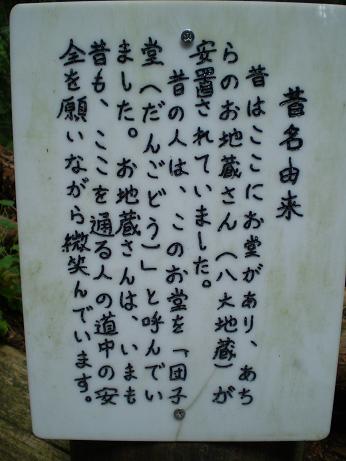 昔名由来
昔はここにお堂があり、あち
らのお地蔵さん(八大地蔵)が
安置されていました。
昔の人は、このお堂を「団子
堂(だんごどう)」と呼んでい
ました。お地蔵さんは、いまも
昔も、ここを通る人の道中の安
全を願いながら微笑んでいます。